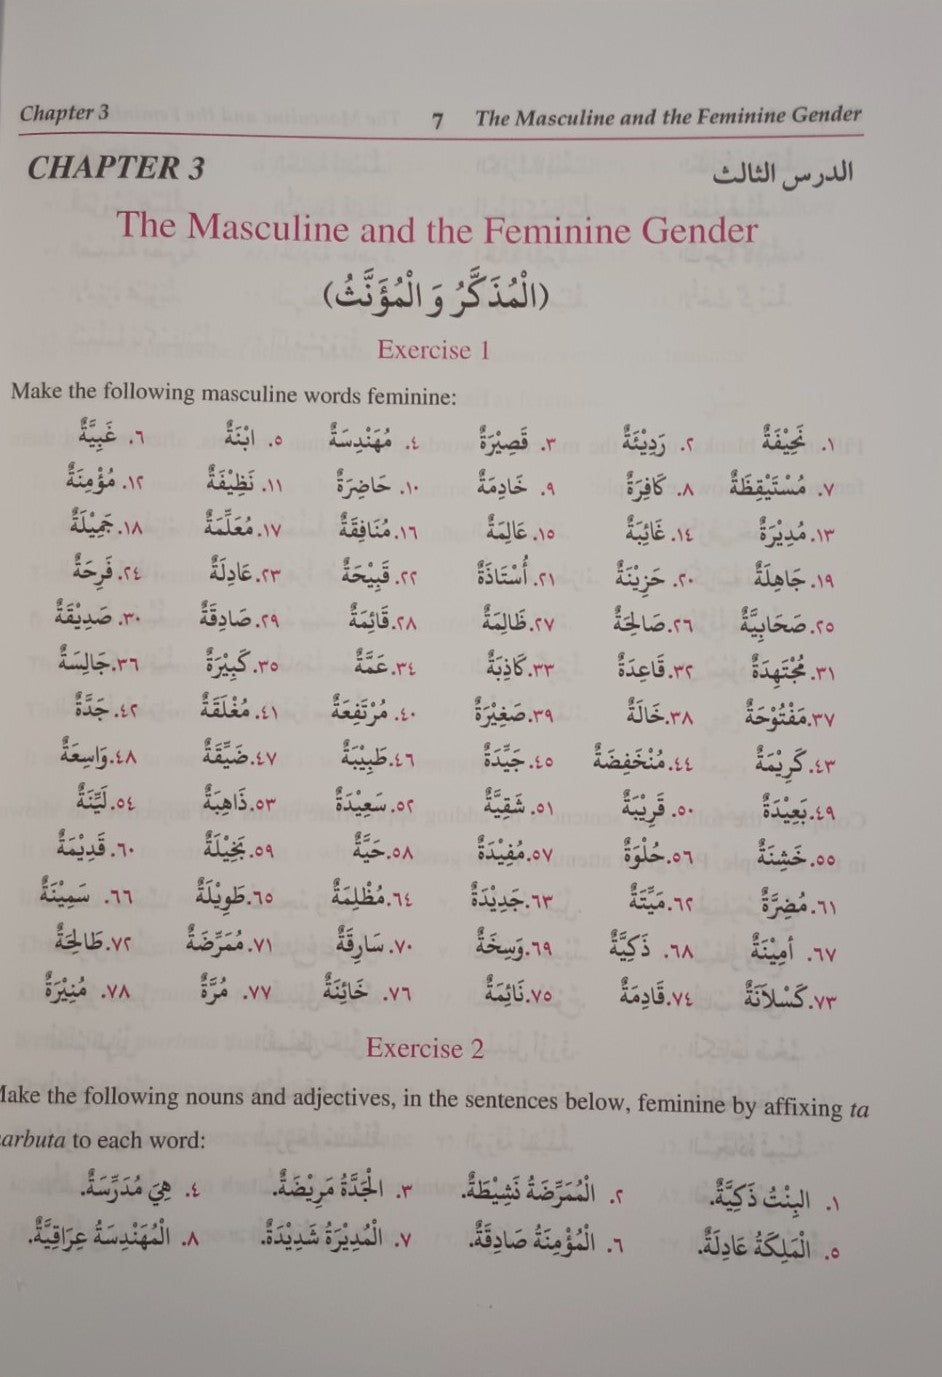 Chapter 3 7 The Masculine and the Feminine Gender
CHAPTER 3 الدرس الثالث
The Masculine and the Feminine Gender
(الْمُذَكَّرُ وَ الْمُؤَنَّثُ)
Exercise 1
Make the following masculine words feminine:
١. نَحِيْفَةٌ ٢. رَدِيْئَةٌ ٣. قَصِيْرَةٌ ٤. مُهَنْدِسَةٌ ٥. ابْنَةٌ ٦. غَبِيَّةٌ
٧. مُسْتَيْقِظَةٌ ٨. كَافِرَةٌ ٩. خَادِمَةٌ ١٠. حَاضِرَةٌ ١١. نَظِيْفَةٌ ١٢. مُؤْمِنَةٌ
١٣. مُدِيْرَةٌ ١٤. غَائِبَةٌ ١٥. عَالِمَةٌ ١٦. مُنَافِقَةٌ ١٧. مُعَلِّمَةٌ ١٨. جَمِيْلَةٌ
١٩. جَاهِلَةٌ ٢٠. حَزِيْنَةٌ ٢١. أُسْتَاذَةٌ ٢٢. قَبِيْحَةٌ ٢٣. عَادِلَةٌ ٢٤. فَرِحَةٌ
٢٥. صَحَابِيَّةٌ ٢٦. صَالِحَةٌ ٢٧. ظَالِمَةٌ ٢٨. قَائِمَةٌ ٢٩. صَادِقَةٌ ٣٠. صَدِيْقَةٌ
٣١. مُجْتَهِدَةٌ ٣٢. قَاعِدَةٌ ٣٣. كَاذِبَةٌ ٣٤. عَمَّةٌ ٣٥. كَبِيْرَةٌ ٣٦. جَالِسَةٌ
٣٧. مَفْتُوْحَةٌ ٣٨. خَالَةٌ ٣٩. صَغِيْرَةٌ ٤٠. مُرْتَفِعَةٌ ٤١. مُغْلَقَةٌ ٤٢. جَدَّةٌ
٤٣. كَرِيْمَةٌ ٤٤. مُنْخَفِضَةٌ ٤٥. جَيِّدَةٌ ٤٦. طَبِيْبَةٌ ٤٧. ضَيِّقَةٌ ٤٨. وَاسِعَةٌ
٤٩. بَعِيْدَةٌ ٥٠. قَرِيْبَةٌ ٥١. شَقِيَّةٌ ٥٢. سَعِيْدَةٌ ٥٣. ذَاهِبَةٌ ٥٤. لَيِّنَةٌ
٥٥. خَشِنَةٌ ٥٦. حُلْوَةٌ ٥٧. مُفِيْدَةٌ ٥٨. حَيَّةٌ ٥٩. بَخِيْلَةٌ ٦٠. قَدِيْمَةٌ
٦١. مُضِرَّةٌ ٦٢. مَيِّتَةٌ ٦٣. جَدِيْدَةٌ ٦٤. مُظْلِمَةٌ ٦٥. طَوِيْلَةٌ ٦٦. سَمِيْنَةٌ
٦٧. أمِيْنَةٌ ٦٨. ذَكِيَّةٌ ٦٩. وَسِخَةٌ ٧٠. سَارِقَةٌ ٧١. مُمَرِّضَةٌ ٧٢. طَالِحَةٌ
٧٣. كَسْلاَنَةٌ ٧٤. قَادِمَةٌ ٧٥. نَائِمَةٌ ٧٦. خَائِنَةٌ ٧٧. مُرَّةٌ ٧٨. مُنِيْرَةٌ
Exercise 2
Make the following nouns and adjectives, in the sentences below, feminine by affixing ta
arbuta to each word:
١. البِنْتُ ذَكِيَّةٌ. ٢. الْمُمَرِّضَةُ نَشِيْطَةٌ. ٣. الْجَدَّةُ مَرِيْضَةٌ. ٤. هِيَ مُدَرِّسَةٌ.
٥. الْمَلِكَةُ عَادِلَةٌ. ٦. الْمُؤْمِنَةُ صَادِقَةٌ. ٧. الْمُدِيْرَةُ شَدِيْدَةٌ. ٨. الْمُهَنْدِسَةُ عِرَاقِيَّةٌ.